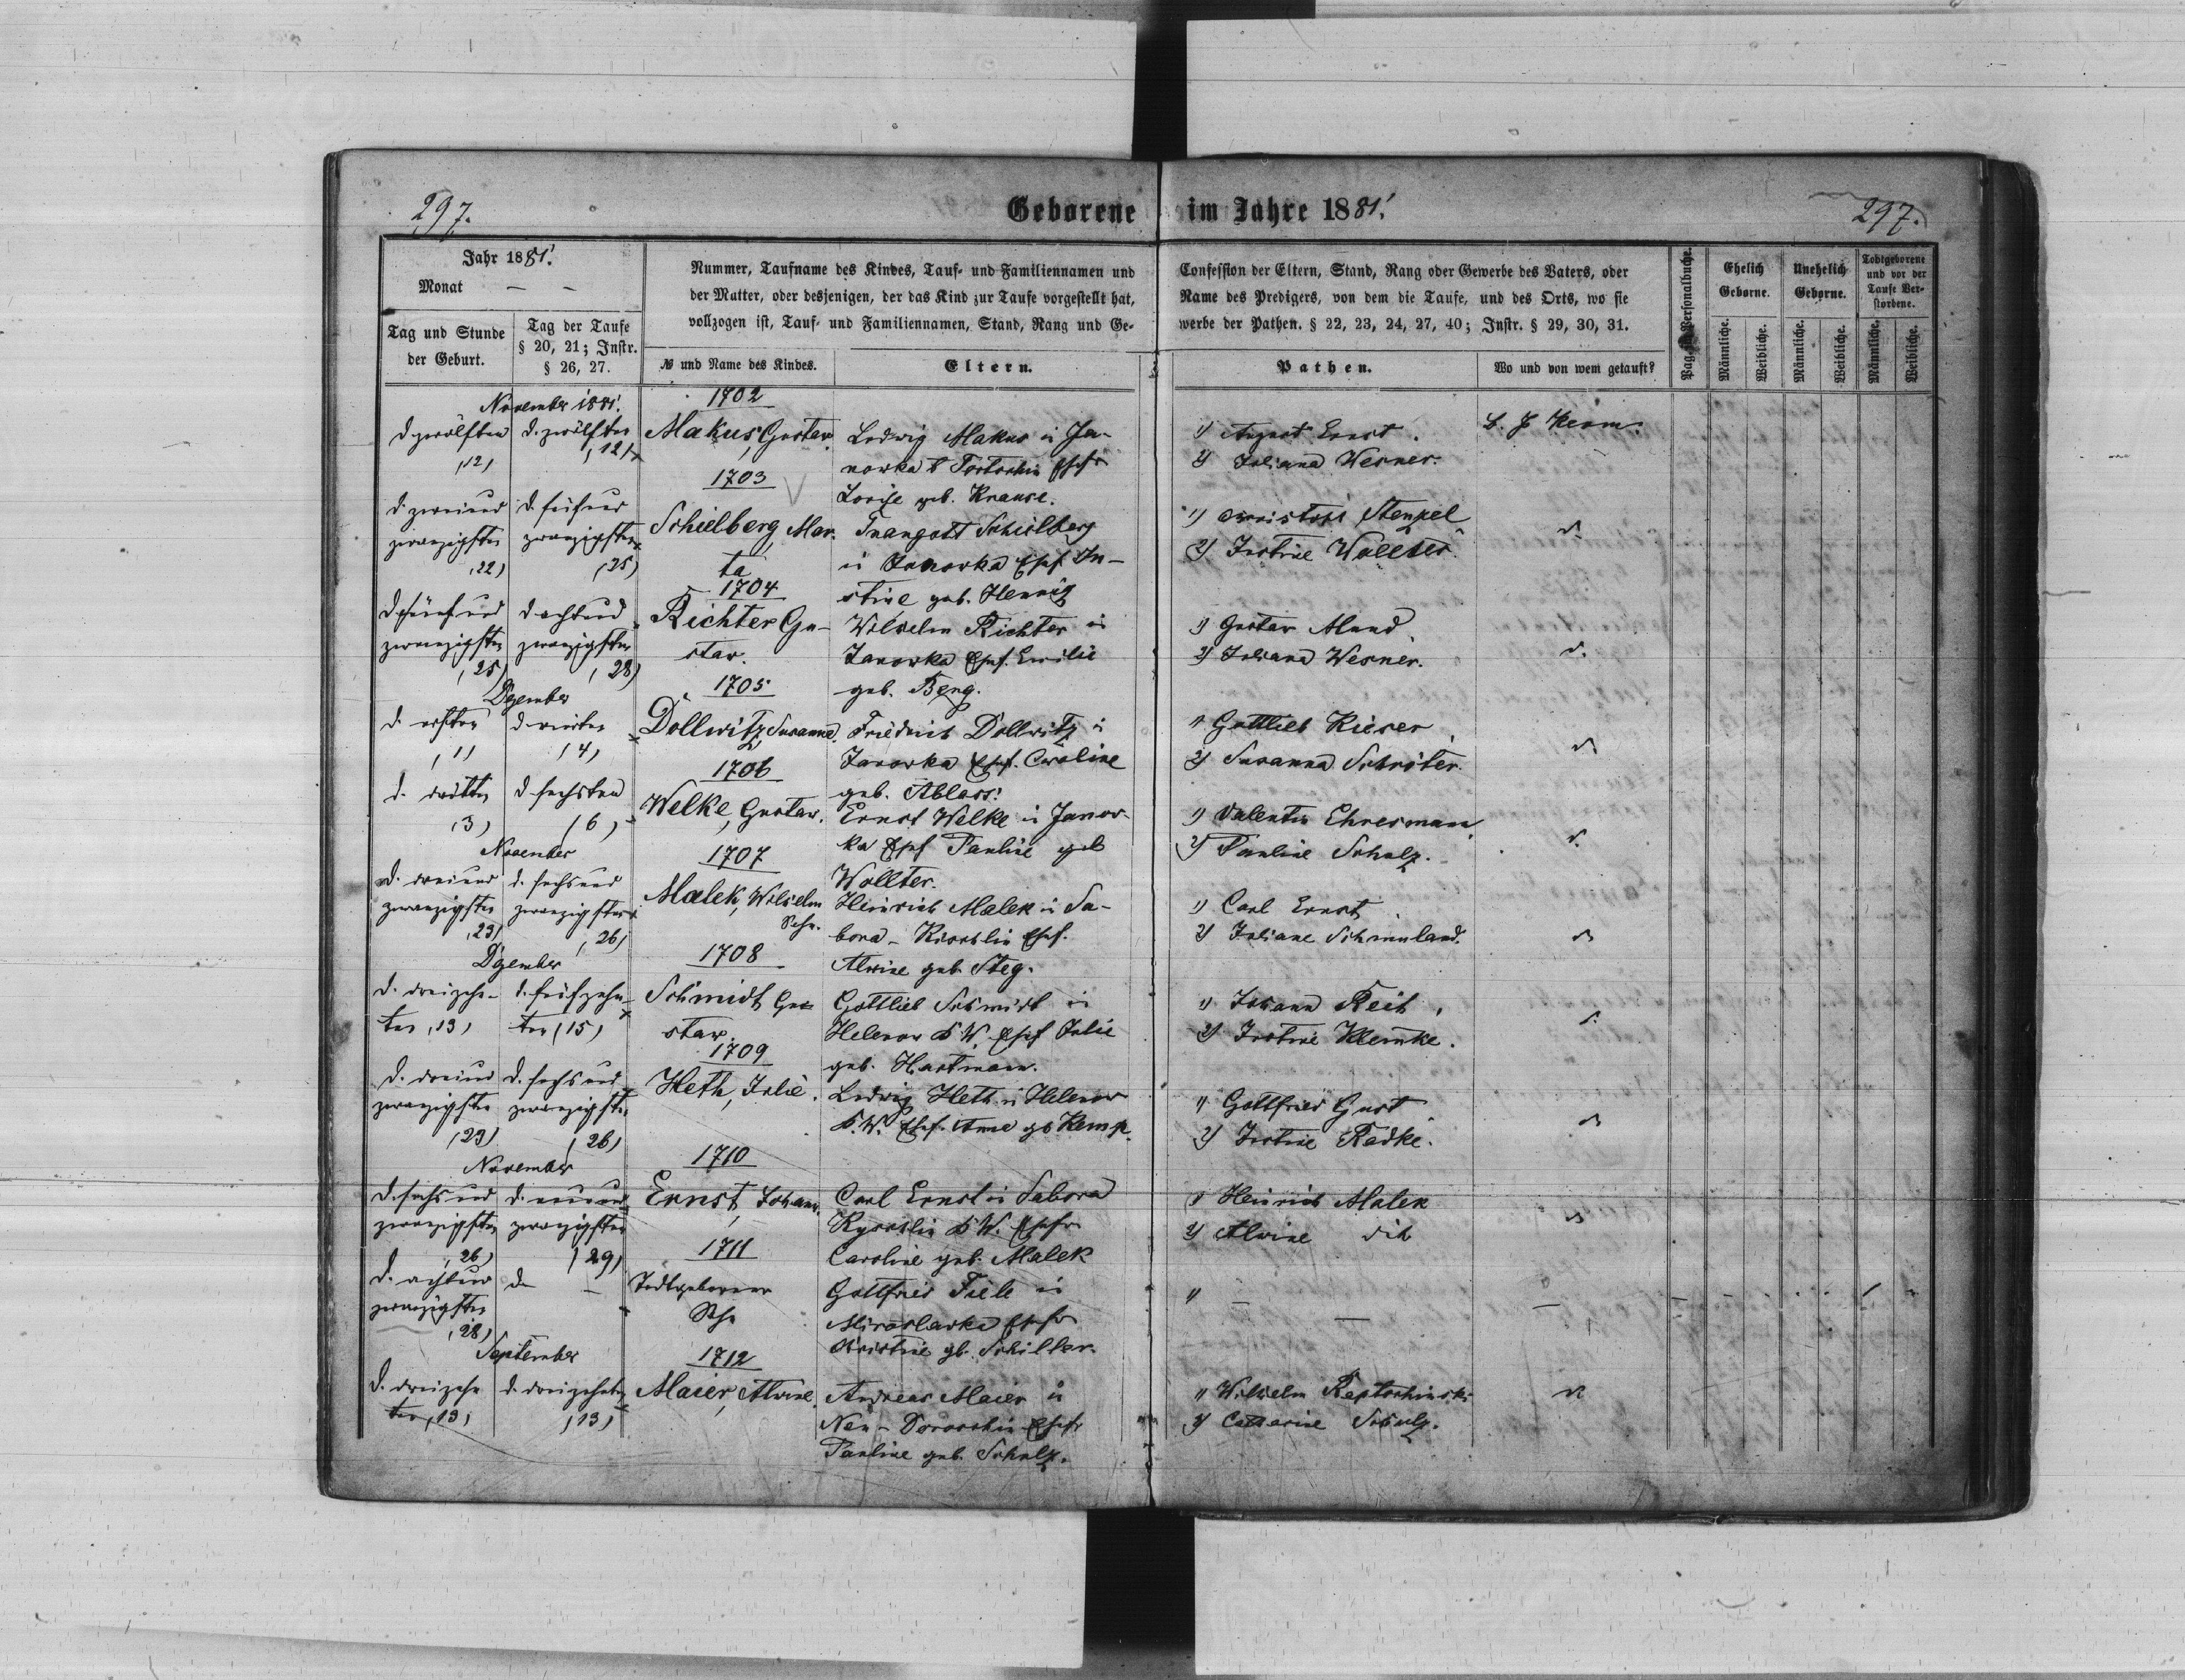 297.
Geborene im Jahre 1881.
297.
Jahr 1881.
Monat — —
Tag und Stunde
der Geburt.
Tag der Taufe
§ 20, 21; Instr.
§ 26, 27.
Nummer, Taufname des Kindes, Tauf- und Familiennamen und
der Mutter, oder desjenigen, der das Kind zur Taufe vorgestellt hat,
vollzogen ist, Tauf- und Familiennamen, Stand, Rang und Ge-
№ und Name des Kindes.
Eltern.
Confession der Eltern, Stand, Rang oder Gewerbe des Vaters, oder
Name des Predigers, von dem die Taufe, und des Orts, wo sie
werbe der Pathen. § 22, 23, 24, 27, 40; Instr. § 29, 30, 31.
Pathen.
Wo und von wem getauft?
Personalbuche.
Ehelich
Geborne.
Unehelich
Geborne.
Todtgeborene
und vor der
Taufe Ver-
storbene.
Männliche.
Weibliche.
Männliche.
Weibliche.
Männliche.
Weibliche.
November 1881.
d. zwölften
(12)
d. zwölften
(12)
1702
Makus, Gustav
Ludwig Makus in Ja-
norka
Louise geb. Krause.
1) August Ernst.
2) Juliana Werner.
d. zweiund
zwanzigsten
(22)
d. fünfund
zwanzigsten
(25)
1703
Schielberg, Mar-
ta
Traugott Schielberg
in Janorka Ehef. Ju-
stine geb. Hennig
1) Christoph Stenzel
2) Justine Wollter.
d.
d. fünfund
zwanzigsten
(25)
d. achtund
zwanzigsten
(28)
1704
Richter Gu-
stav.
Wilhelm Richter in
Janorka Ehef. Emilie
geb. Beng.
1) Gustav Mund
2) Juliana Werner.
d.
Dezember
d. ersten
(1)
d. vierten
(4)
1705
Dollwitz, Susanna.
Friedrich Dollwitz in
Janorka Ehef. Caroline
geb. Ablass.
1) Gottlieb Rieser
2) Susanna Schröter.
d.
d. dritten
(3)
d. sechsten
(6)
1706
Welke, Gustav.
Ernst Welke in Janor-
ka Ehef Pauline geb
Wollter.
1) Valentin Ehresmann
2) Pauline Schulz.
d.
November
d. dreiund
zwanzigsten
(23)
d. sechsund
zwanzigsten
(26)
1707
Malek, Wilhelm
Heinrich Malek in Sa-
bora - Ehef.
Alwine geb. Steg.
1) Carl Ernst
2) Juliane Schmuland.
d.
Dezember
d. dreizehn-
ten (13)
d. fünfzehn-
ten (15)
1708
Schmidt Gu-
stav.
Gottlieb Schmidt in
Helenow K W. Ehef Julie
geb. Hartmann.
1) Johann Reich
2) Justine Klemke.
d.
d. dreiund
zwanzigsten
(23)
d. sechsund
zwanzigsten
(26)
1709
Heth, Julie.
Ludwig Heth in Helenow
K.W. Ehef. Anna gb Kemp.
1) Gottfried Gust
2) Justine Radke.
d.
November
d. sechsund
zwanzigsten
(26)
d. neunund
zwanzigsten
(29)
1710
Ernst, Johann.
Carl Ernst in Sabora
K W. Ehefr
Caroline geb. Malek
1) Heinrich Malek
2) Alwine dito
d.
d. achtund
zwanzigsten
(28)
d. —
1711
Todtgeborener
Sohn
Gottfried Fiele in
Miroslawka Ehefr
Christine gb. Schiller.
1) —
—
—
September
d. dreizehn
ten (13)
d. dreizehnten
(13)
1712
Maier, Alwine.
Andreas Maier in
Neu - Ehefr
Pauline geb. Schulz.
1) Wilhelm
2) Catharine Schulz.
d.